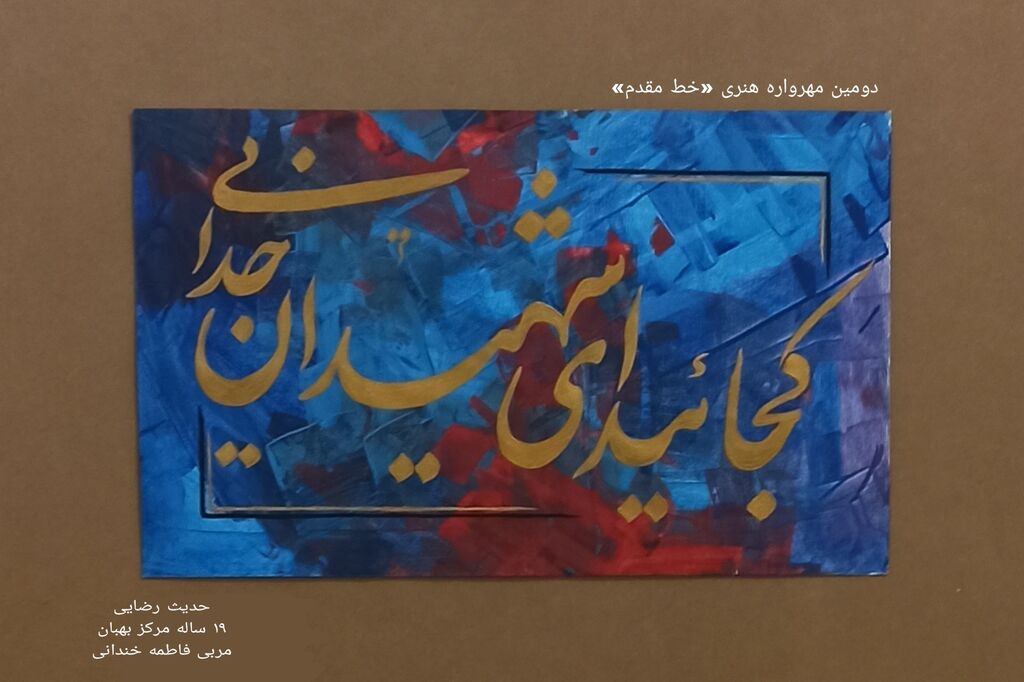 دومین مهرواره هنری «خط مقدم»
کجائید ای شهیدان خدائی
حدیث رضایی
۱۹ ساله مرکز بهبان
مربی فاطمه خندانی